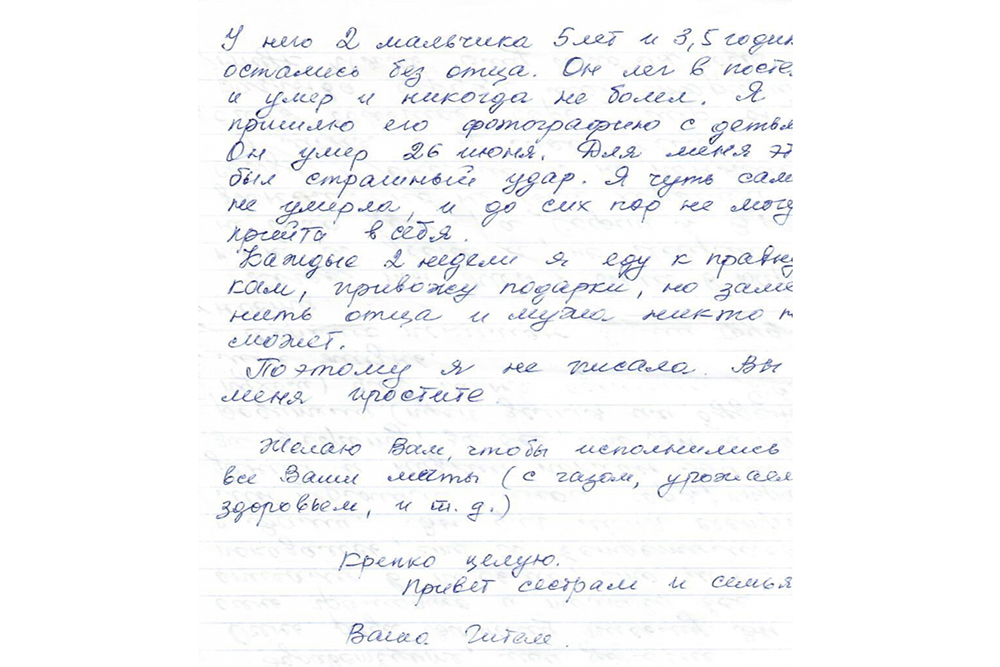 У него 2 мальчика 5 лет и 3,5 годин
остались без отца. Он лег в посте
и умер и никогда не болел. Я
пришлю его фотографию с детьм
Он умер 26 июня. Для меня эт
был страшный удар. Я чуть сам
не умерла, и до сих пор не могу
прийти в себя.
Каждые 2 недели я еду к правну
кам, привожу подарки, но заме
нить отца и мужа никто н
может.
Поэтому я не писала. Вы
меня простите.
Желаю Вам, чтобы исполнились
все Ваши мечты (с газом, урожаем
здоровьем, и т.д.)
Крепко целую.
Привет сестрам и семья
Ваша